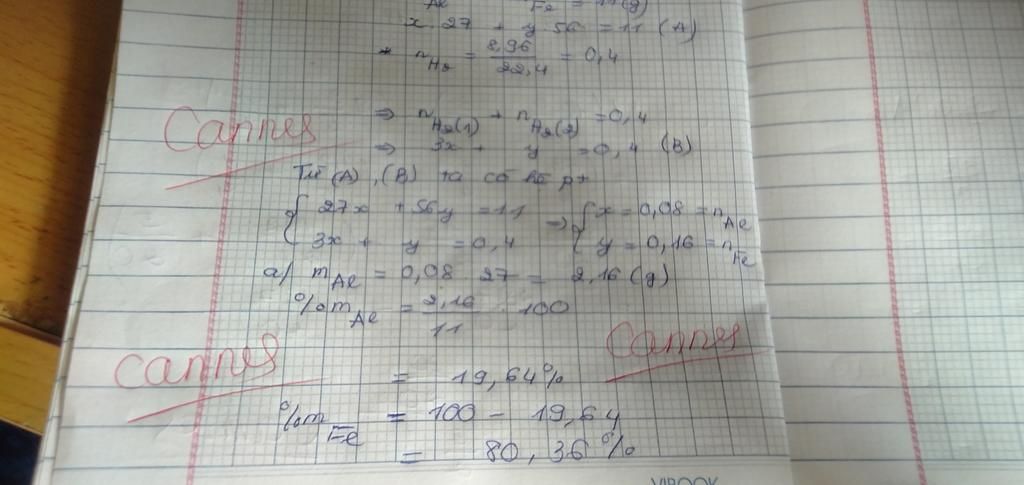 Al Fe = 11 (g)
x 27 + y 56 = 11 (A)
* n H2 = 8,96 / 22,4 = 0,4
Cannes
⇒ n H2(1) + n H2(2) = 0,4
⇒ 3x + y = 0,4 (B)
Từ (A), (B) ta có hệ pt
{ 27x + 56y = 11 ⇒ { x = 0,08 = n Al
3x + y = 0,4 y = 0,16 = n Fe
a/ m Al = 0,08 27 = 2,16 (g)
%m Al = 2,16 / 11 100
Cannes
Cannes
= 19,64%
%m Fe = 100 - 19,64
= 80,36 %
VIBOOK